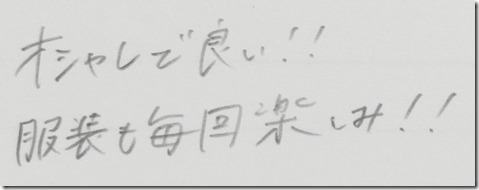 オシャレで良い!!
服装も毎回楽しみ!!